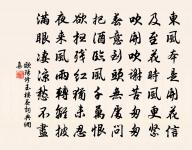 東風本是開花信
及至花時風更緊
吹開吹謝苦匆匆
春意到頭無處問
把酒臨風千萬恨
欲掃殘紅猶未忍
夜來風雨轉離披
滿眼淒涼愁不盡
歐陽修玉樓春